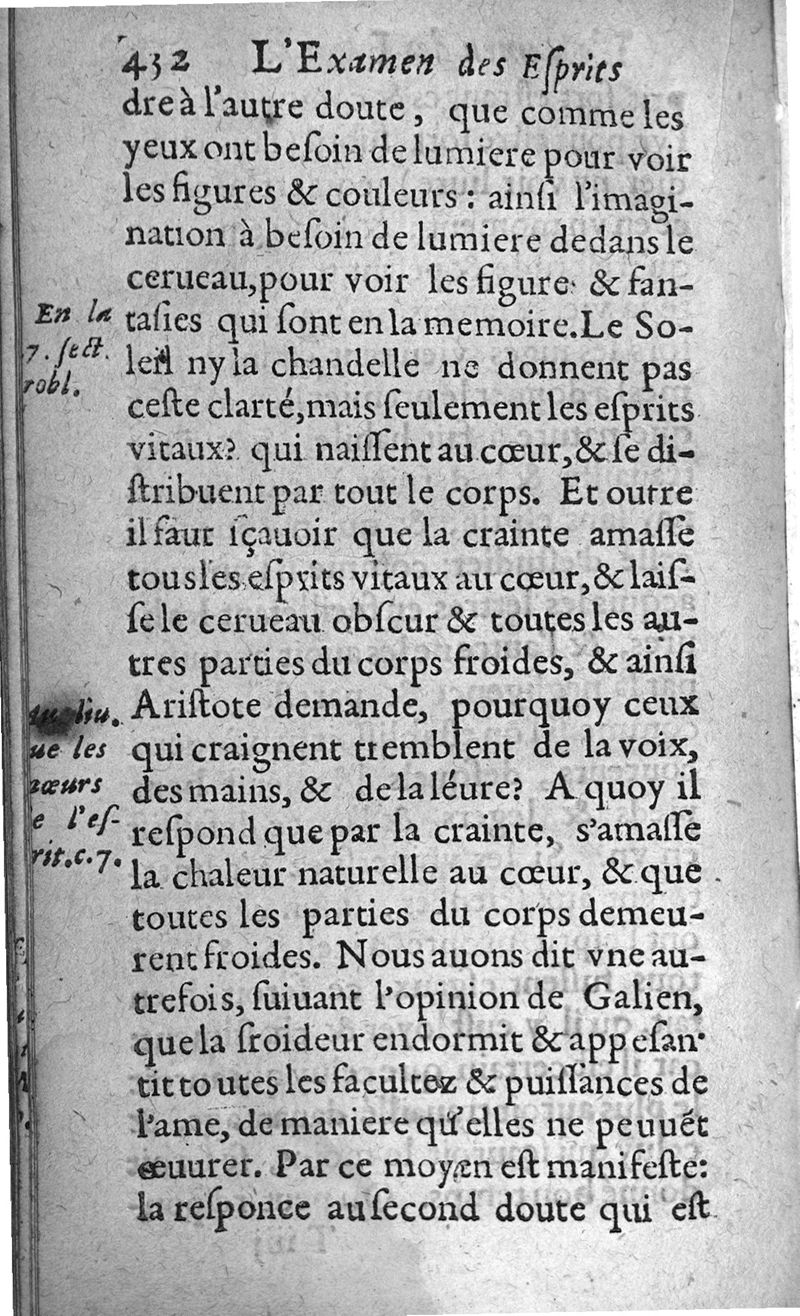 432 L'Examen des Eſprits
dre à l'autre doute, que comme les
yeux ont beſoin de lumiere pour voir
les figures & couleurs : ainſi l'imagi-
nation à beſoin de lumiere dedans le
cerueau, pour voir les figure & fan-
taſies qui ſont en la memoire. Le So-
leil ny la chandelle ne donnent pas
ceſte clarté, mais ſeulement les eſprits
vitaux? qui naiſſent au cœur, & ſe di-
ſtribuent par tout le corps. Et outre
il faut ſçauoir que la crainte amaſſe
tous les eſprits vitaux au cœur, & laiſ-
ſe le cerueau obſcur & toutes les au-
tres parties du corps froides, & ainſi
Ariſtote demande, pourquoy ceux
qui craignent tremblent de la voix,
des mains, & de la léure? A quoy il
reſpond que par la crainte, s'amaſſe
la chaleur naturelle au cœur, & que
toutes les parties du corps demeu-
rent froides. Nous auons dit vne au-
trefois, ſuiuant l'opinion de Galien,
que la froideur endormit & appeſan-
tit toutes les facultez & puiſſances de
l'ame, de maniere qu'elles ne peuuẽt
œuurer. Par ce moyen eſt manifeſte:
la reſponce au ſecond doute qui eſt
En la
7. ſect.
robl.
liu.
ue les
mœurs
e l'eſ-
rit. c. 7.